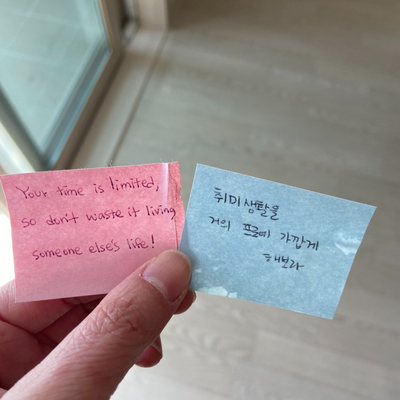 Your time is limited,
so don't waste it living
someone else's life!
취미생활을
거의 프로에 가깝게
해보라